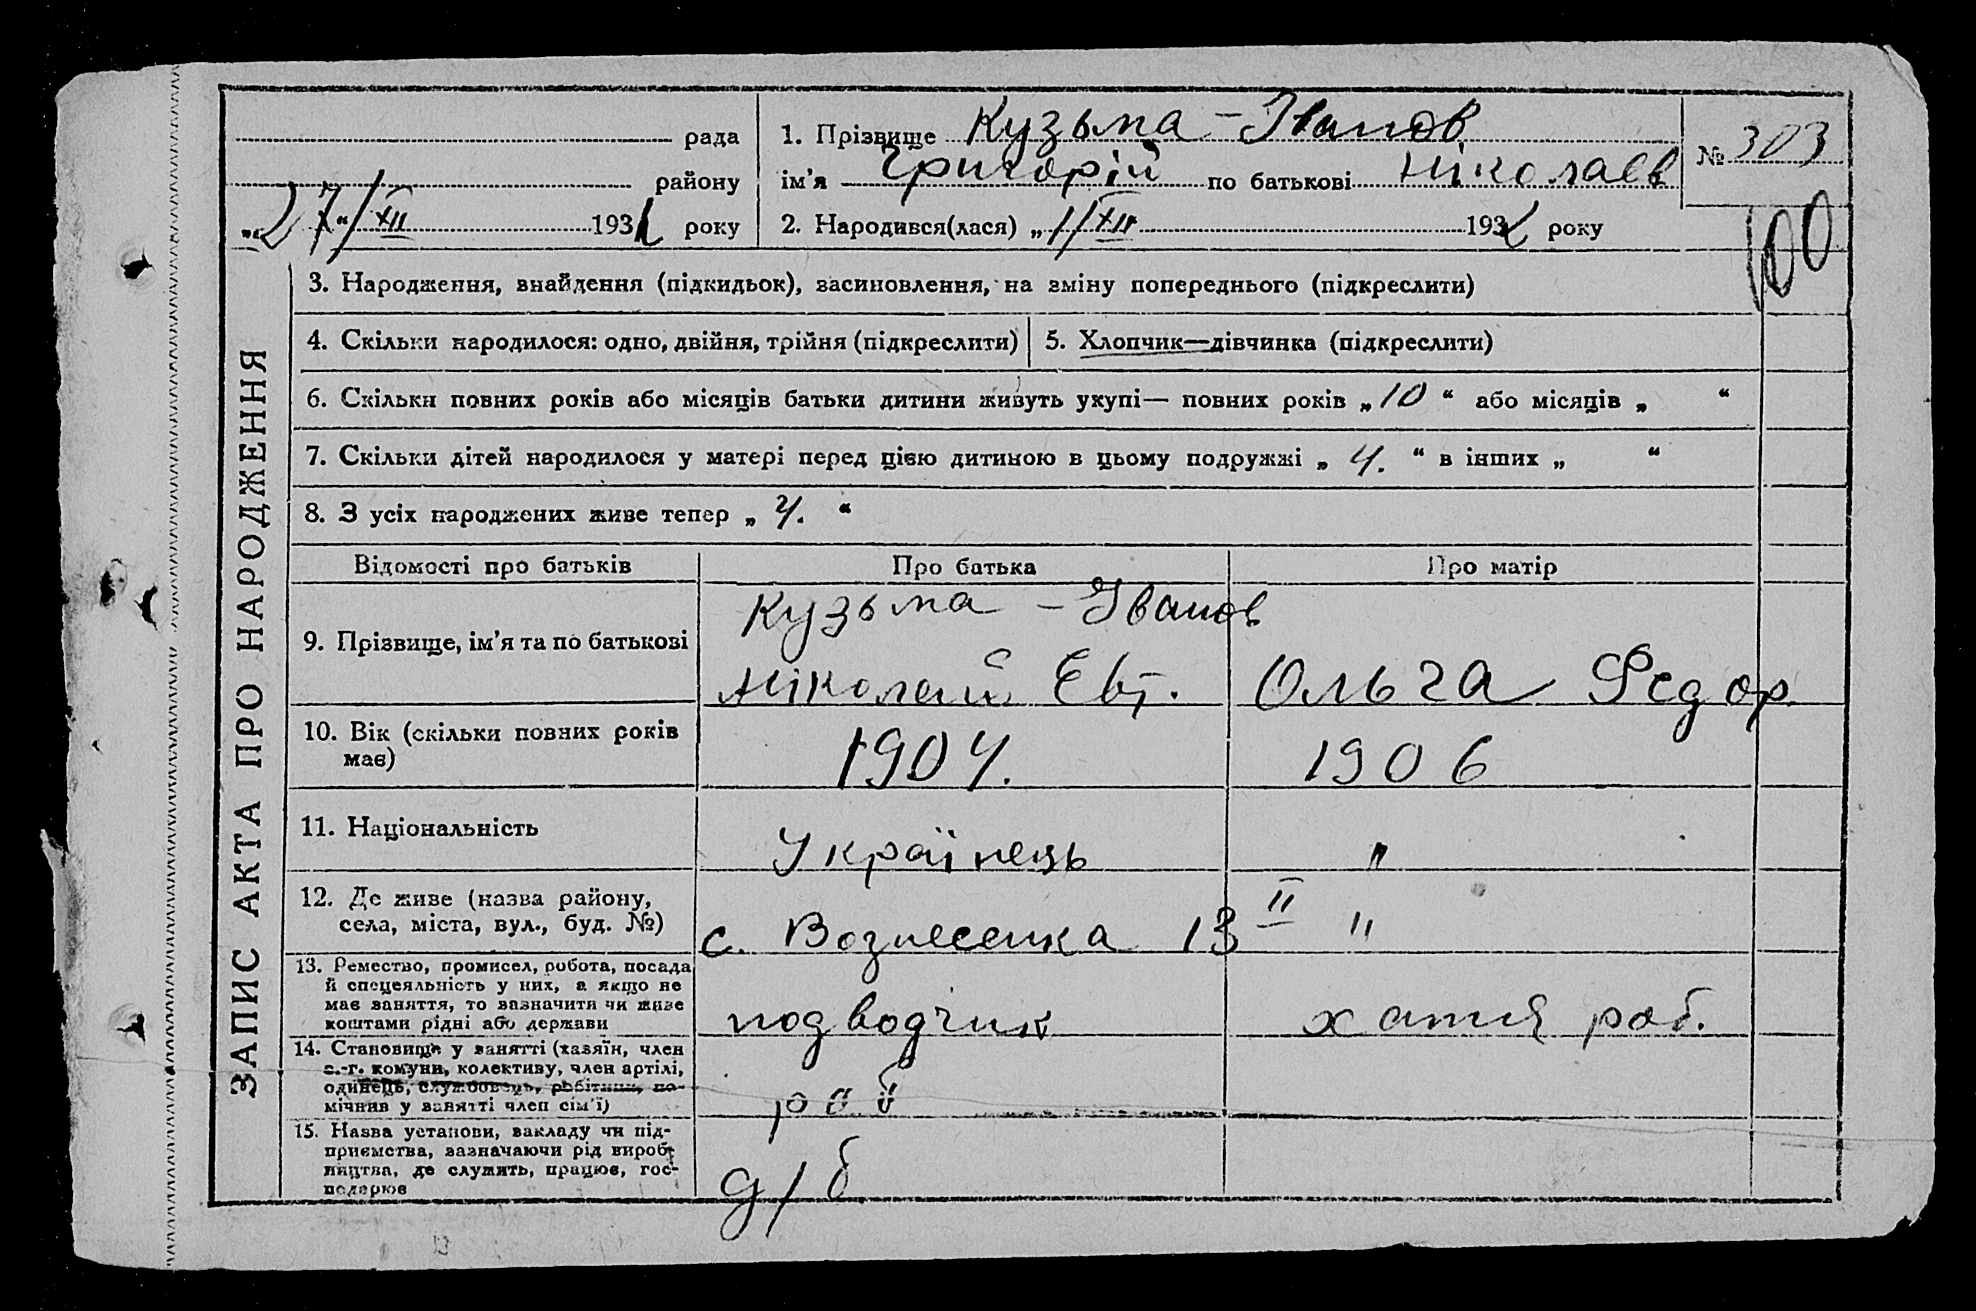 ЗАПИС АКТА ПРО НАРОДЖЕННЯ
рада
району
„27“/XII 1931 року
1. Прізвище Кузьма-Іванов
ім’я Григорій по батькові Ніколаєв
2. Народився(лася) „1/XII 193 року
№ 303
100
3. Народження, знайдення (підкидьок), засиновлення, на зміну попереднього (підкреслити)
4. Скільки народилося: одно, двійня, трійня (підкреслити)
5. Хлопчик—дівчинка (підкреслити)
6. Скільки повних років або місяців батьки дитини живуть укупі— повних років „10“ або місяців „ “
7. Скільки дітей народилося у матері перед цією дитиною в цьому подружжі „4.“ в інших „ “
8. З усіх народжених живе тепер „4.“
Відомості про батьків
Про батька
Про матір
9. Прізвище, ім’я та по батькові
Кузьма - Іванов
Ніколай Евт.
Ольга Федор.
10. Вік (скільки повних років
має)
1904.
1906
11. Національність
Українець
"
12. Де живе (назва району,
села, міста, вул., буд. №)
с. Вознесенка 13
II "
13. Ремество, промисел, робота, посада
й спецеяльність у них, а якщо не
має заняття, то зазначити чи живе
коштами рідні або держави
подводчик
хатня роб.
14. Становище у занятті (хазяїн, член
с.-г. комуни, колективу, член артілі,
одинець, службовець, робітник, по-
мічнив у занятті член сім’ї)
роб
15. Назва установи, закладу чи під-
приємства, зазначаючи рід вироб-
ництва, де служить, працює, гос-
подарює
д/б